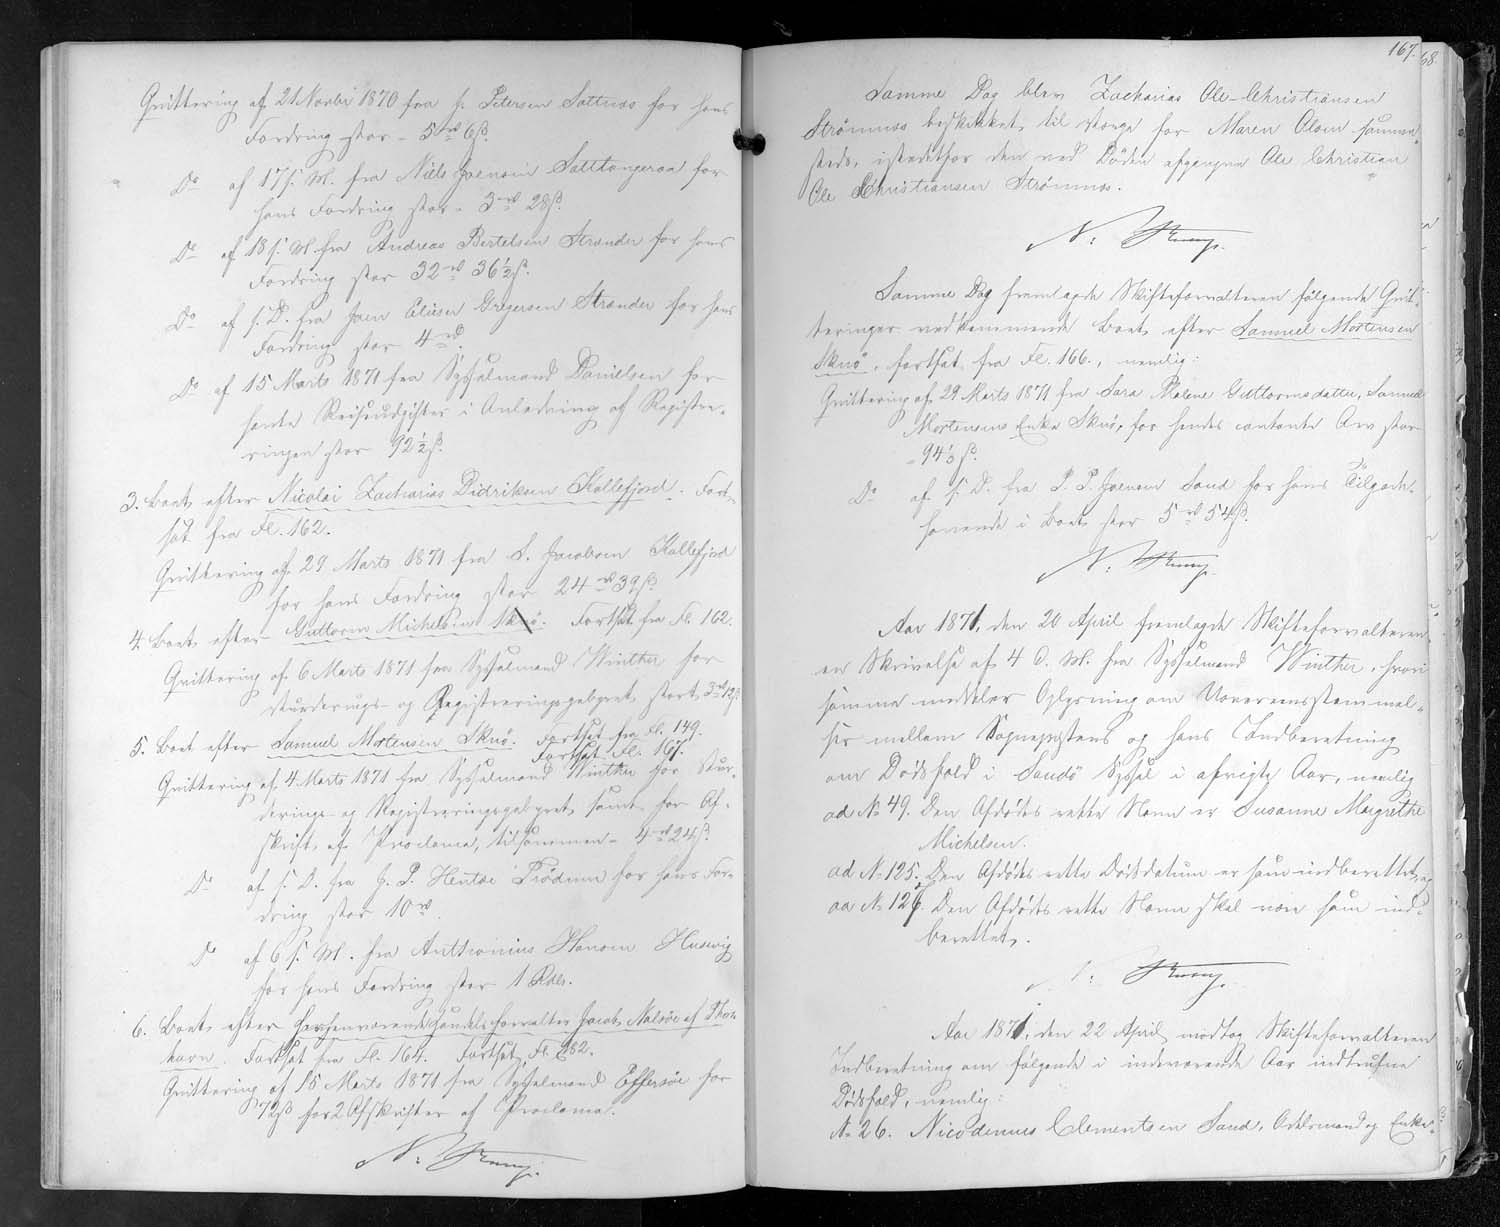 Qvittering af 21 Novbr 1870 fra J. Petersen Sattnæs for hans
Fordring stor - 5 rd 6 ß.
Do af 17 s. M. fra Niels Joensen Saltangeraa for
hans Fordring stor - 3 rd 28 ß.
Do af 18 s. M. fra Andreas Bertelsen Strander for hans
Fordring stor 32 rd 36 1/2 ß.
Do af s. D. fra Joen Elias Gregersen Strander for hans
Fordring stor 4 rd
Do af 15 Marts 1871 fra Sysselmand Danielsen for
havte Reiseudgifter i Anledning af Registre-
ringen stor 92 1/2 ß.
3. Boet efter Nicolai Zacharias Didriksen Kollefjord. Fort-
sat fra Fl. 162.
Qvittering af 29 Marts 1871 fra S. Jacobsen Kollefjord
for hans Fordring stor 24 rd 39 ß.
4. Boet efter Guttorm Michelsen Skuø. Fortsat fra Fl. 162.
Qvittering af 6 Marts 1871 fra Sysselmand Winther for
Vurderings- og Registreringsgebyret stort 3 rd 12 ß
5. Boet efter Samuel Mortensen Skuø. Fortsat fra Fl. 149.
Fortsat Fl. 167.
Qvittering af 4 Marts 1871 fra Sysselmand Winther for Vur-
derings- og Registreringsgebyret, samt for Af-
skrift af Proclama, tilsammen - 4 rd 24 ß.
Do af s. D. fra J. P. Hentze Trødum for hans For-
dring stor 10 rd.
Do af 6 s. M. fra Anthonius Hansen Husevig
for hans Fordring stor 1 Rdlr.
6. Boet efter forhenværende Handelsforvalter Jacob Nolsøe af Thors-
havn. Fortsat fra Fl. 164. Fortsat Fl. 182.
Qvittering af 15 Marts 1871 fra Sysselmand Effersøe for
72 ß for 2 Afskrifter af Proclama.
N:
167.
68
Samme Dag blev Zacharias Ole-Christiansen
Strømnæs beskikket til Værge for Maren Olsen sammen-
steds, istedetfor den ved Døden afgangne Ole Christian
Ole Christiansen Strømnæs.
N:
Samme Dag fremlagde Skifteforvalteren følgende Qvit-
teringer vedkommende Boet efter Samuel Mortensen
Skuø, fortsat fra Fl. 166., nemlig:
Qvittering af 29 Marts 1871 fra Sara Malene Guttormsdatter, Samuel
Mortensens Enke Skuø, for hendes contante Arv stor
- 94 1/3 ß.
Do af s. D. fra P. P. Joensen Sand for hans Tilgode-
havende i Boet stor 5 rd 54 ß.
N:
Aar 1871, den 20 April fremlagde Skifteforvalteren
en Skrivelse af 4 d. M. fra Sysselmand Winther, hvori
samme meddeler Oplysning om Uoverensstemmel-
ser mellem Sognepræstens og hans Indberetning
om Dødsfald i Sandø Syssel i afvigte Aar, nemlig
ad No 49. Den Afdødes rette Navn er Susanne Margrethe
Michelsen.
ad No 125. Den Afdødes rette Dødsdatum er som indberettet, og
ad No 126. Den Afdødes rette Navn skal være som ind-
berettet.
N:
Aar 1871, den 22 April modtog Skifteforvalteren
Indberetning om følgende i indeværende Aar indtrufne
Dødsfald, nemlig:
No 26. Nicodemus Clementsen Sand, Odelsmand og Enke-